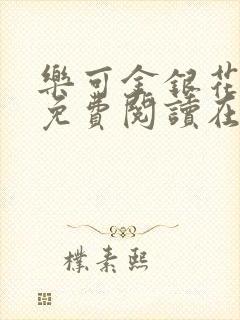 樂可金銀花
免費閱讀在
樸素熙